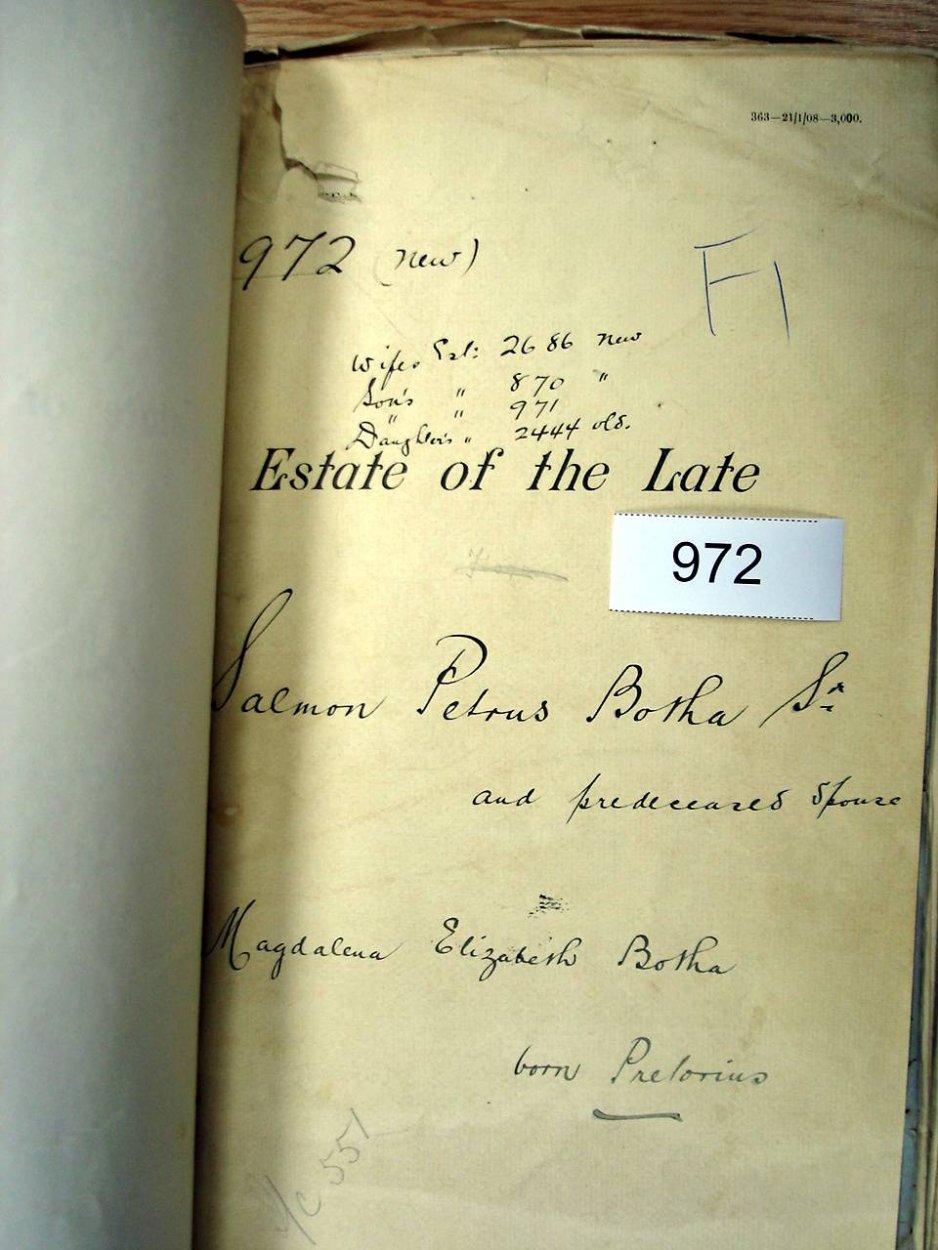 363—21/1/08—3,000.
972 (new)
F1
Wife's Est: 2686 new
Son's " 870 "
" " 971
Daughter's " 2444 old.
Estate of the Late
972
Salmon Petrus Botha Sr
and predeceased Spouse
Magdalena Elizabeth Botha
born Pretorius
1/c 551